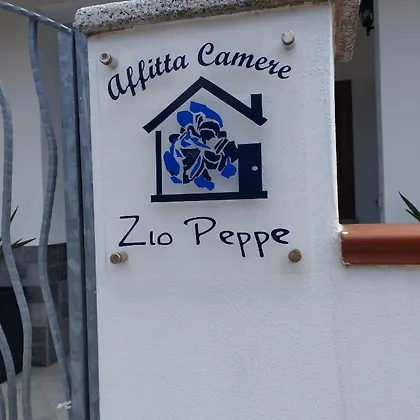 Affitta Camere
Zio Peppe